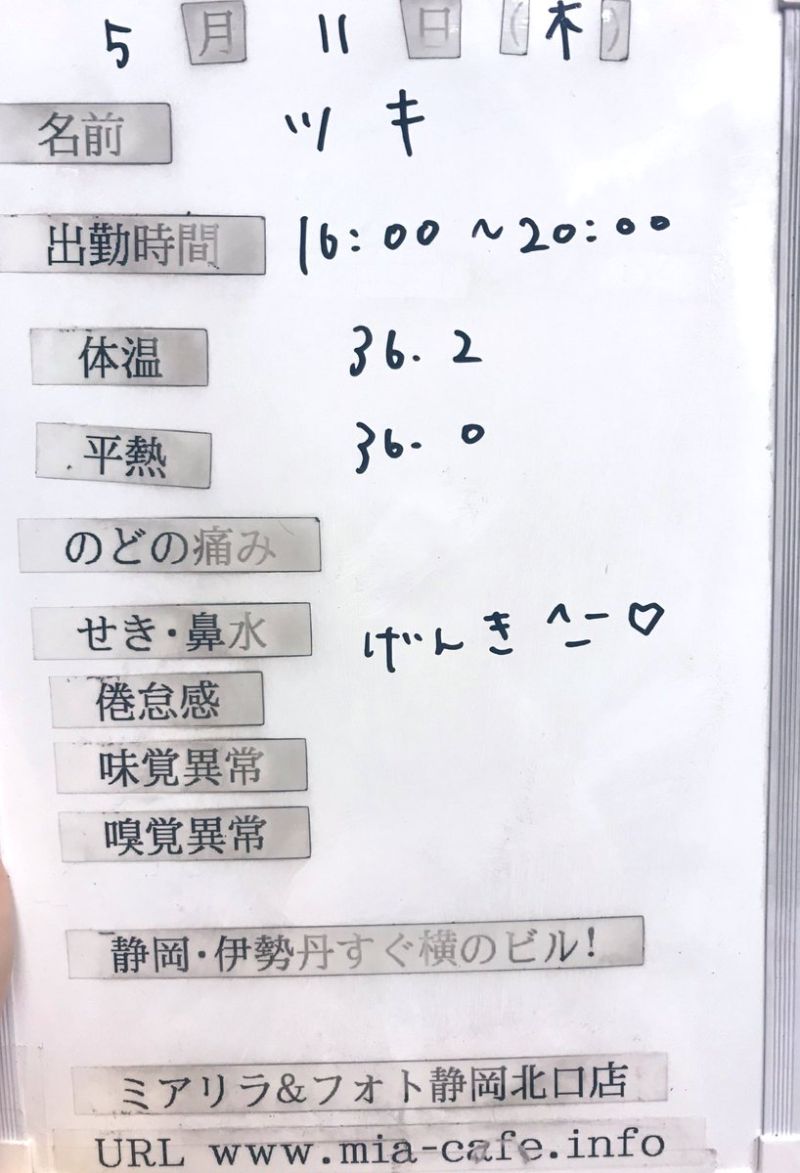 5月11日(木)
名前 ツキ
出勤時間 16:00~20:00
体温 36.2
平熱 36.0
のどの痛み
せき・鼻水 げんき ^ー^ ♡
倦怠感
味覚異常
嗅覚異常
静岡・伊勢丹すぐ横のビル!
ミアリラ&フォト静岡北口店
URL www.mia-cafe.info